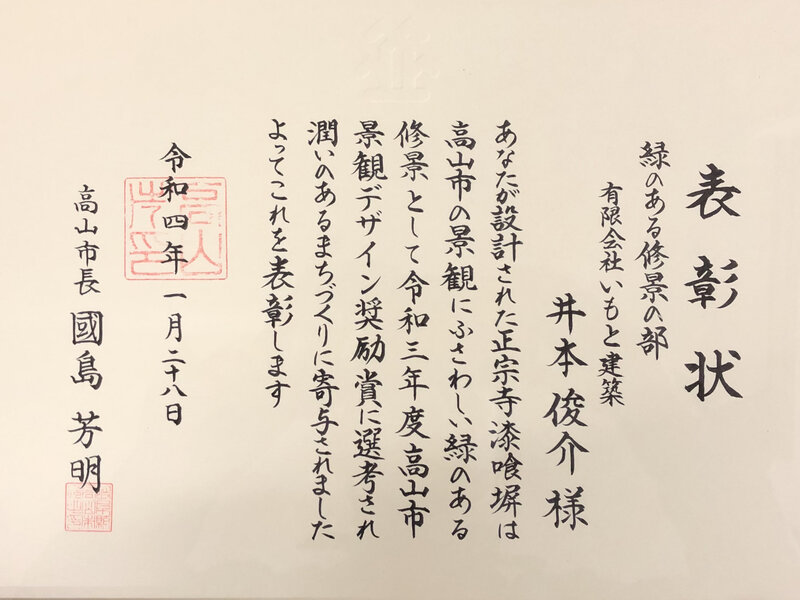 表彰状
緑のある修景の部
有限会社いもと建築
井本俊介様
あなたが設計された正宗寺漆喰塀は
高山市の景観にふさわしい緑のある
修景として令和三年度高山市
景観デザイン奨励賞に選考され
潤いのあるまちづくりに寄与されました
よってこれを表彰します
令和四年一月二十八日
高山市長 國島 芳明